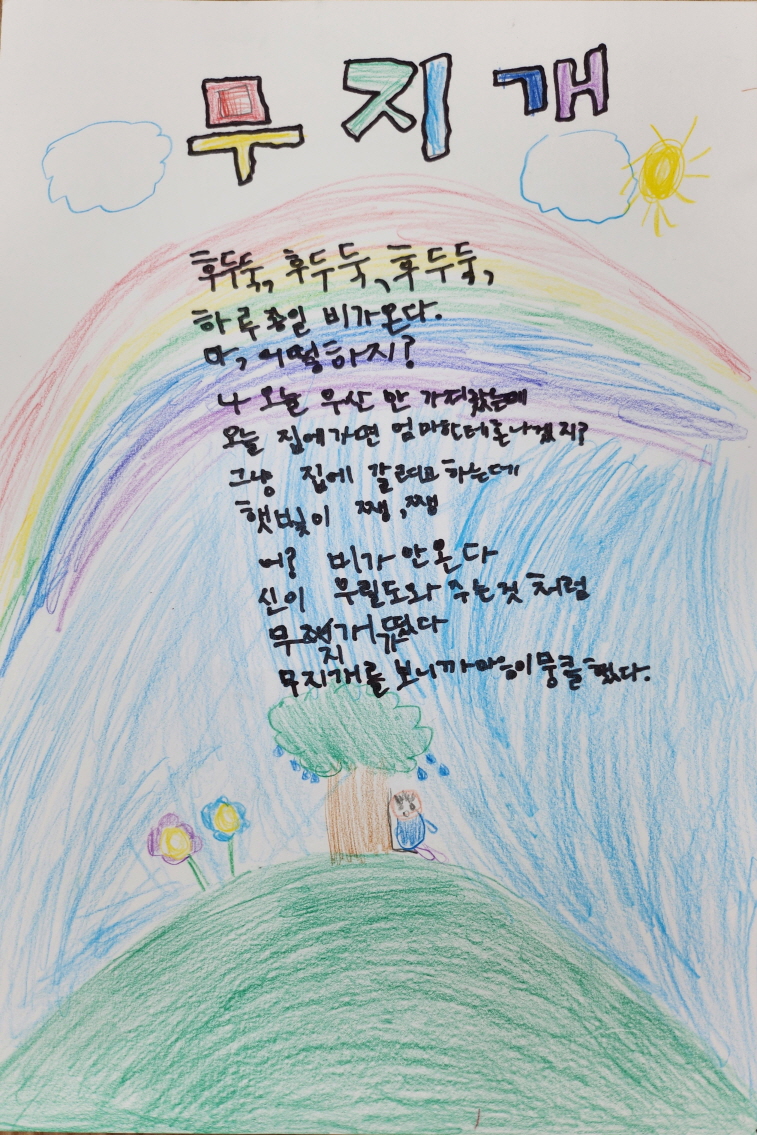 무지개
후두둑, 후두둑, 후두둑,
하루종일 비가온다.
아, 어떻하지?
나 오늘 우산 안 가져왔는데
오늘 집에가면 엄마한테혼나겠지?
그냥 집에 갈려고하는데
햇빛이 쨍,쨍
어? 비가안온다
신이 우릴도와 주는것처럼
무지개가 떴다
무지개를 보니까마음이뭉클했다.